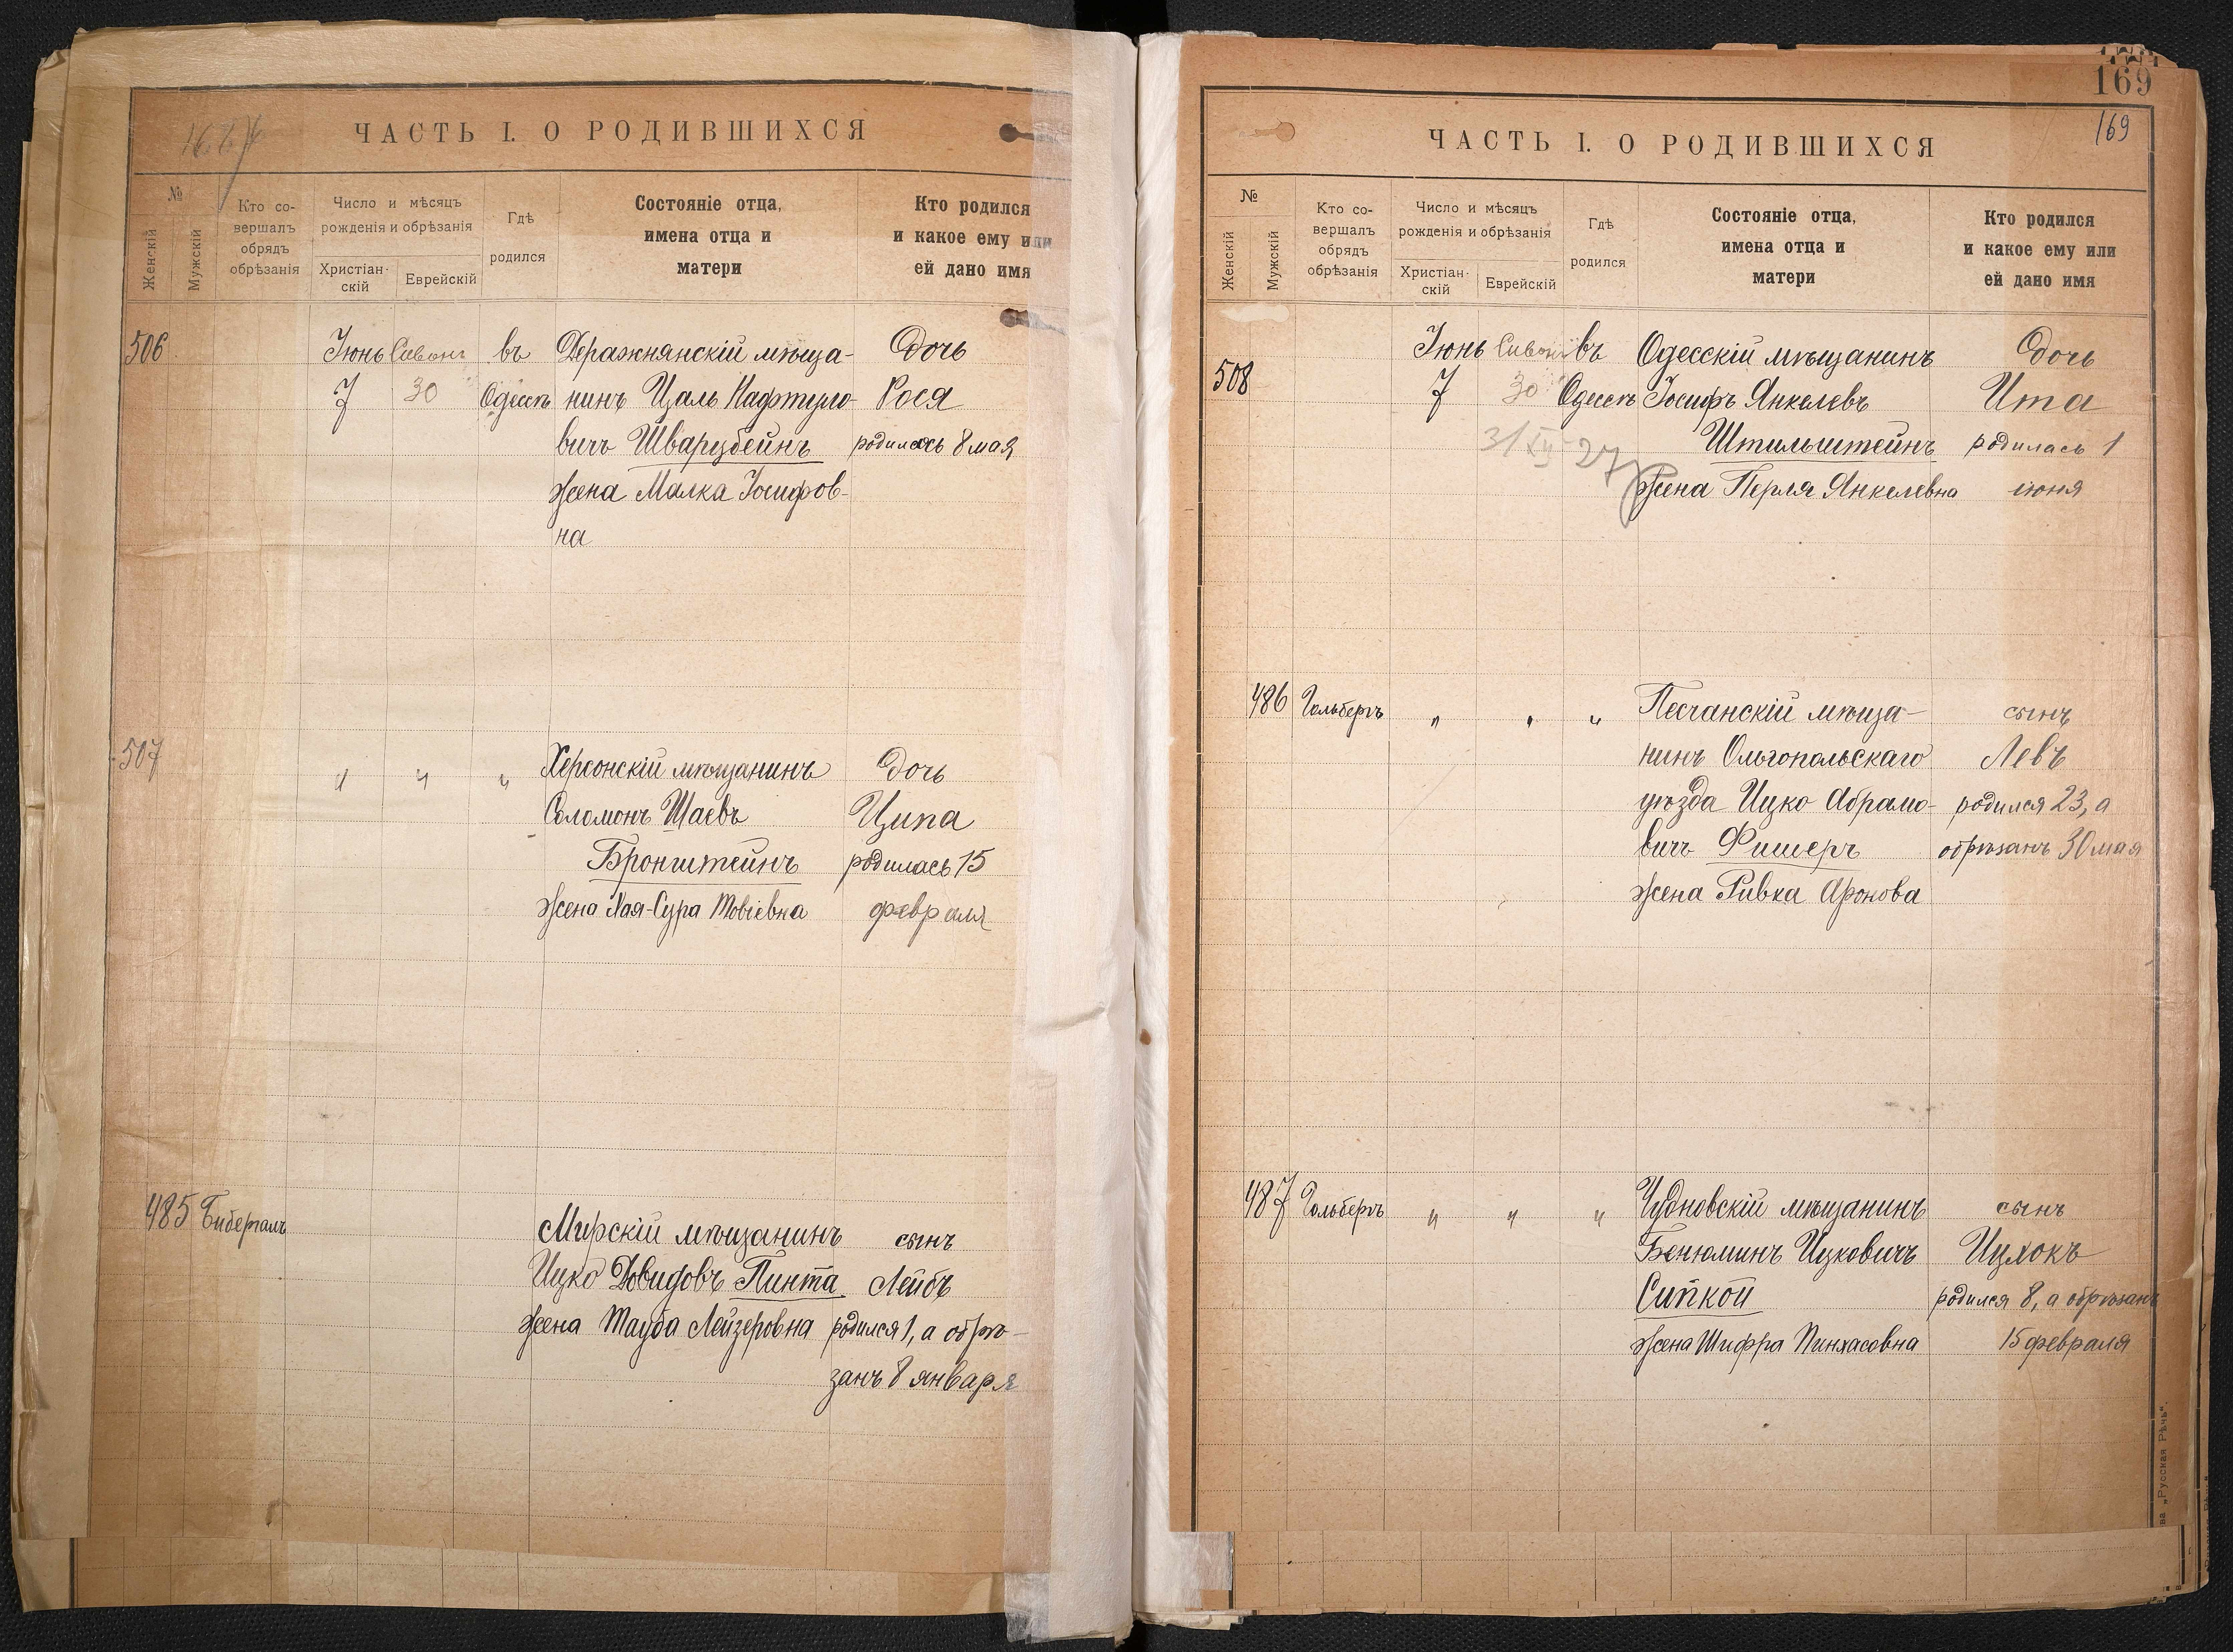 ЧАСТЬ I. О РОДИВШИХСЯ
№
Женскій
Мужскій
Кто со-
вершалъ
обрядъ
обрѣзанія
Число и мѣсяцъ
рожденія и обрѣзанія
Христіан-
скій
Еврейскій
Гдѣ
родился
Состояніе отца,
имена отца и
матери
Кто родился
и какое ему или
ей дано имя
506 Іюнь Сивонъ въ Деражнянскій мѣща- Дочь
7 30 Одессѣ нинъ Цаль Нафтуло- Рося
вичъ Шварцбейнъ родилась 8 мая
жена Малка Іосифов-
на
507 " " " Херсонскій мѣщанинъ Дочь
Соломонъ Шаевъ Ципа
Бронштейнъ родилась 15
жена Хая-Сура Товіевна февраля
485 Бибергалъ Мирскій мѣщанинъ сынъ
Ицко Довидовъ Пинта Лейбъ
жена Тауба Лейзеровна родился 1, а обрѣ-
занъ 8 января
169
169
ЧАСТЬ I. О РОДИВШИХСЯ
№
Женскій
Мужскій
Кто со-
вершалъ
обрядъ
обрѣзанія
Число и мѣсяцъ
рожденія и обрѣзанія
Христіан-
скій
Еврейскій
Гдѣ
родился
Состояніе отца,
имена отца и
матери
Кто родился
и какое ему или
ей дано имя
508 Іюнь Сивонъ въ Одесскій мѣщанинъ Дочь
7 30 Одессѣ Іосифъ Янкелевъ Ита
31 XII 27 Штильштейнъ родилась 1
жена Перля Янкелевна іюня
486 Гольбергъ " " " Песчанскій мѣща- сынъ
нинъ Ольгопольскаго Левъ
уѣзда Ицко Абрамо- родился 23, а
вичъ Фишеръ обрѣзанъ 30 мая
жена Ривка Аронова
487 Гольбергъ " " " Чудновскій мѣщанинъ сынъ
Бенюминъ Ицковичъ Ицхокъ
Сипкой родился 8, а обрѣзанъ
жена Шифра Пинхасовна 15 февраля
ва „Русская Рѣчь“.